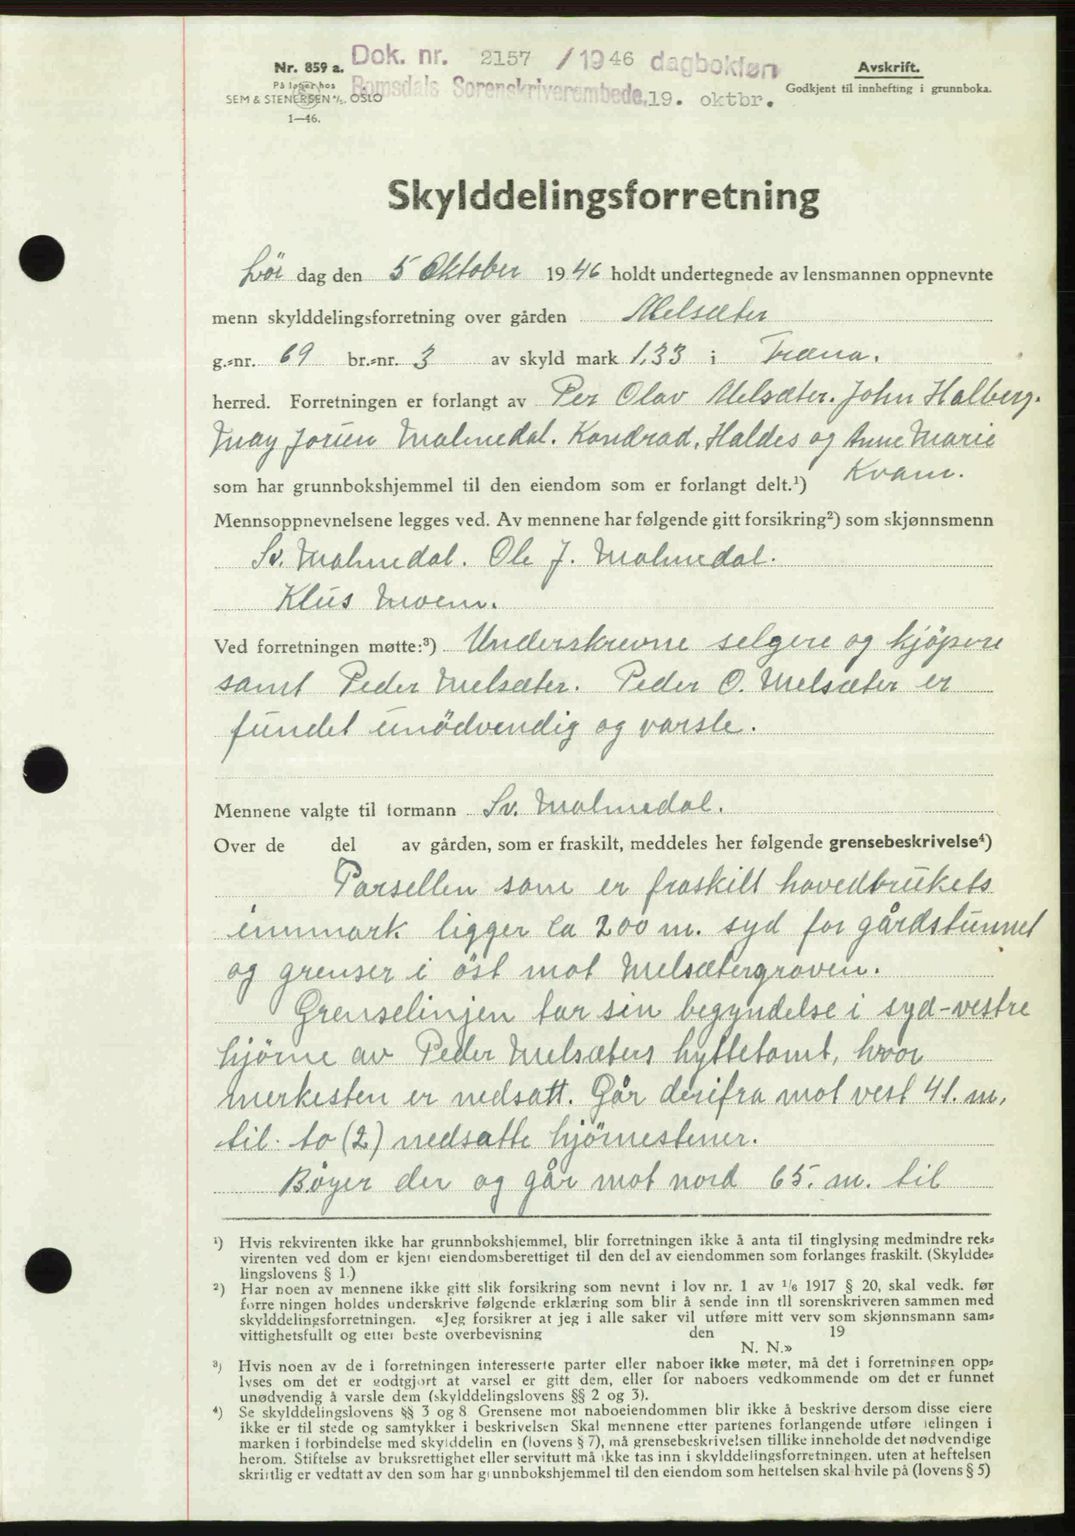 Nr. 859 a.
På lager hos
SEM & STENERSEN A/S, OSLO
1—46.
Dok. nr. 2157 / 1946 dagbokført
Romsdals Sorenskriverembede, 19. oktbr.
Avskrift.
Godkjent til innhefting i grunnboka.
Skylddelingsforretning
Lör dag den 5 Oktober 1946 holdt undertegnede av lensmannen oppnevnte
menn skylddelingsforretning over gården Melsæter
g.-nr. 69 br.-nr. 3 av skyld mark 1,33 i Fræna.
herred. Forretningen er forlangt av Per Olav Melsæter. John Halberg.
May Jorun Malmedal. Kondrad, Haldes og Anne Marie
Kvam.
som har grunnbokshjemmel til den eiendom som er forlangt delt.¹)
Mennsoppnevnelsene legges ved. Av mennene har følgende gitt forsikring²) som skjønnsmenn
Sv. Malmedal. Ole J. Malmedal.
Klus Moen.
Ved forretningen møtte:³) Underskrevne selgere og kjöpere
samt Peder Melsæter. Peder O. Melsæter er
fundet unödvendig og varsle.
Mennene valgte til formann Sv. Malmedal.
Over de del av gården, som er fraskilt, meddeles her følgende grensebeskrivelse⁴)
Parsellen som er fraskilt hovedbrukets
innmark ligger ca 200 m. syd for gårdstunnet
og grenser i öst mot Melsætergroven.
Grenselinjen tar sin begyndelse i syd-vestre
hjörne av Peder Melsæters hyttetomt, hvor
merkesten er nedsatt. Går derifra mot vest 41. m.
til to (2) nedsatte hjörnestener.
Böyer der og går mot nord 65. m. til
¹) Hvis rekvirenten ikke har grunnbokshjemmel, blir forretningen ikke å anta til tinglysing medmindre rek-
virenten ved dom er kjent eiendomsberettiget til den del av eiendommen som forlanges fraskilt. (Skyldde-
lingslovens § 1.)
²) Har noen av mennene ikke gitt slik forsikring som nevnt i lov nr. 1 av 1/6 1917 § 20, skal vedk. før
forretningen holdes underskrive følgende erklæring som blir å sende inn til sorenskriveren sammen med
skylddelingsforretningen. «Jeg forsikrer at jeg i alle saker vil utføre mitt verv som skjønnsmann sam-
vittighetsfullt og etter beste overbevisning den 19
N. N.»
³) Hvis noen av de i forretningen interesserte parter eller naboer ikke møter, må det i forretningen opp-
lyses om det er godtgjort at varsel er gitt dem, eller for naboers vedkommende om det er funnet
unødvendig å varsle dem (skylddelingslovens §§ 2 og 3).
⁴) Se skylddelingslovens §§ 3 og 8. Grensene mot naboeiendommen blir ikke å beskrive dersom disse eiere
ikke er til stede og samtykker i beskrivelsen. Skal mennene etter partenes forlangende utføre delingen i
marken i forbindelse med skylddelingen (lovens § 7), må grensebeskrivelsen tillike inneholde det nødvendige
herom. Stiftelse av bruksrettighet eller servitutt må ikke tas inn i skylddelingsforretningen, uten at heftelsen
skriftlig er vedtatt av den som har grunnbokshjemmel til den eiendom som heftelsen skal hvile på (lovens § 5)